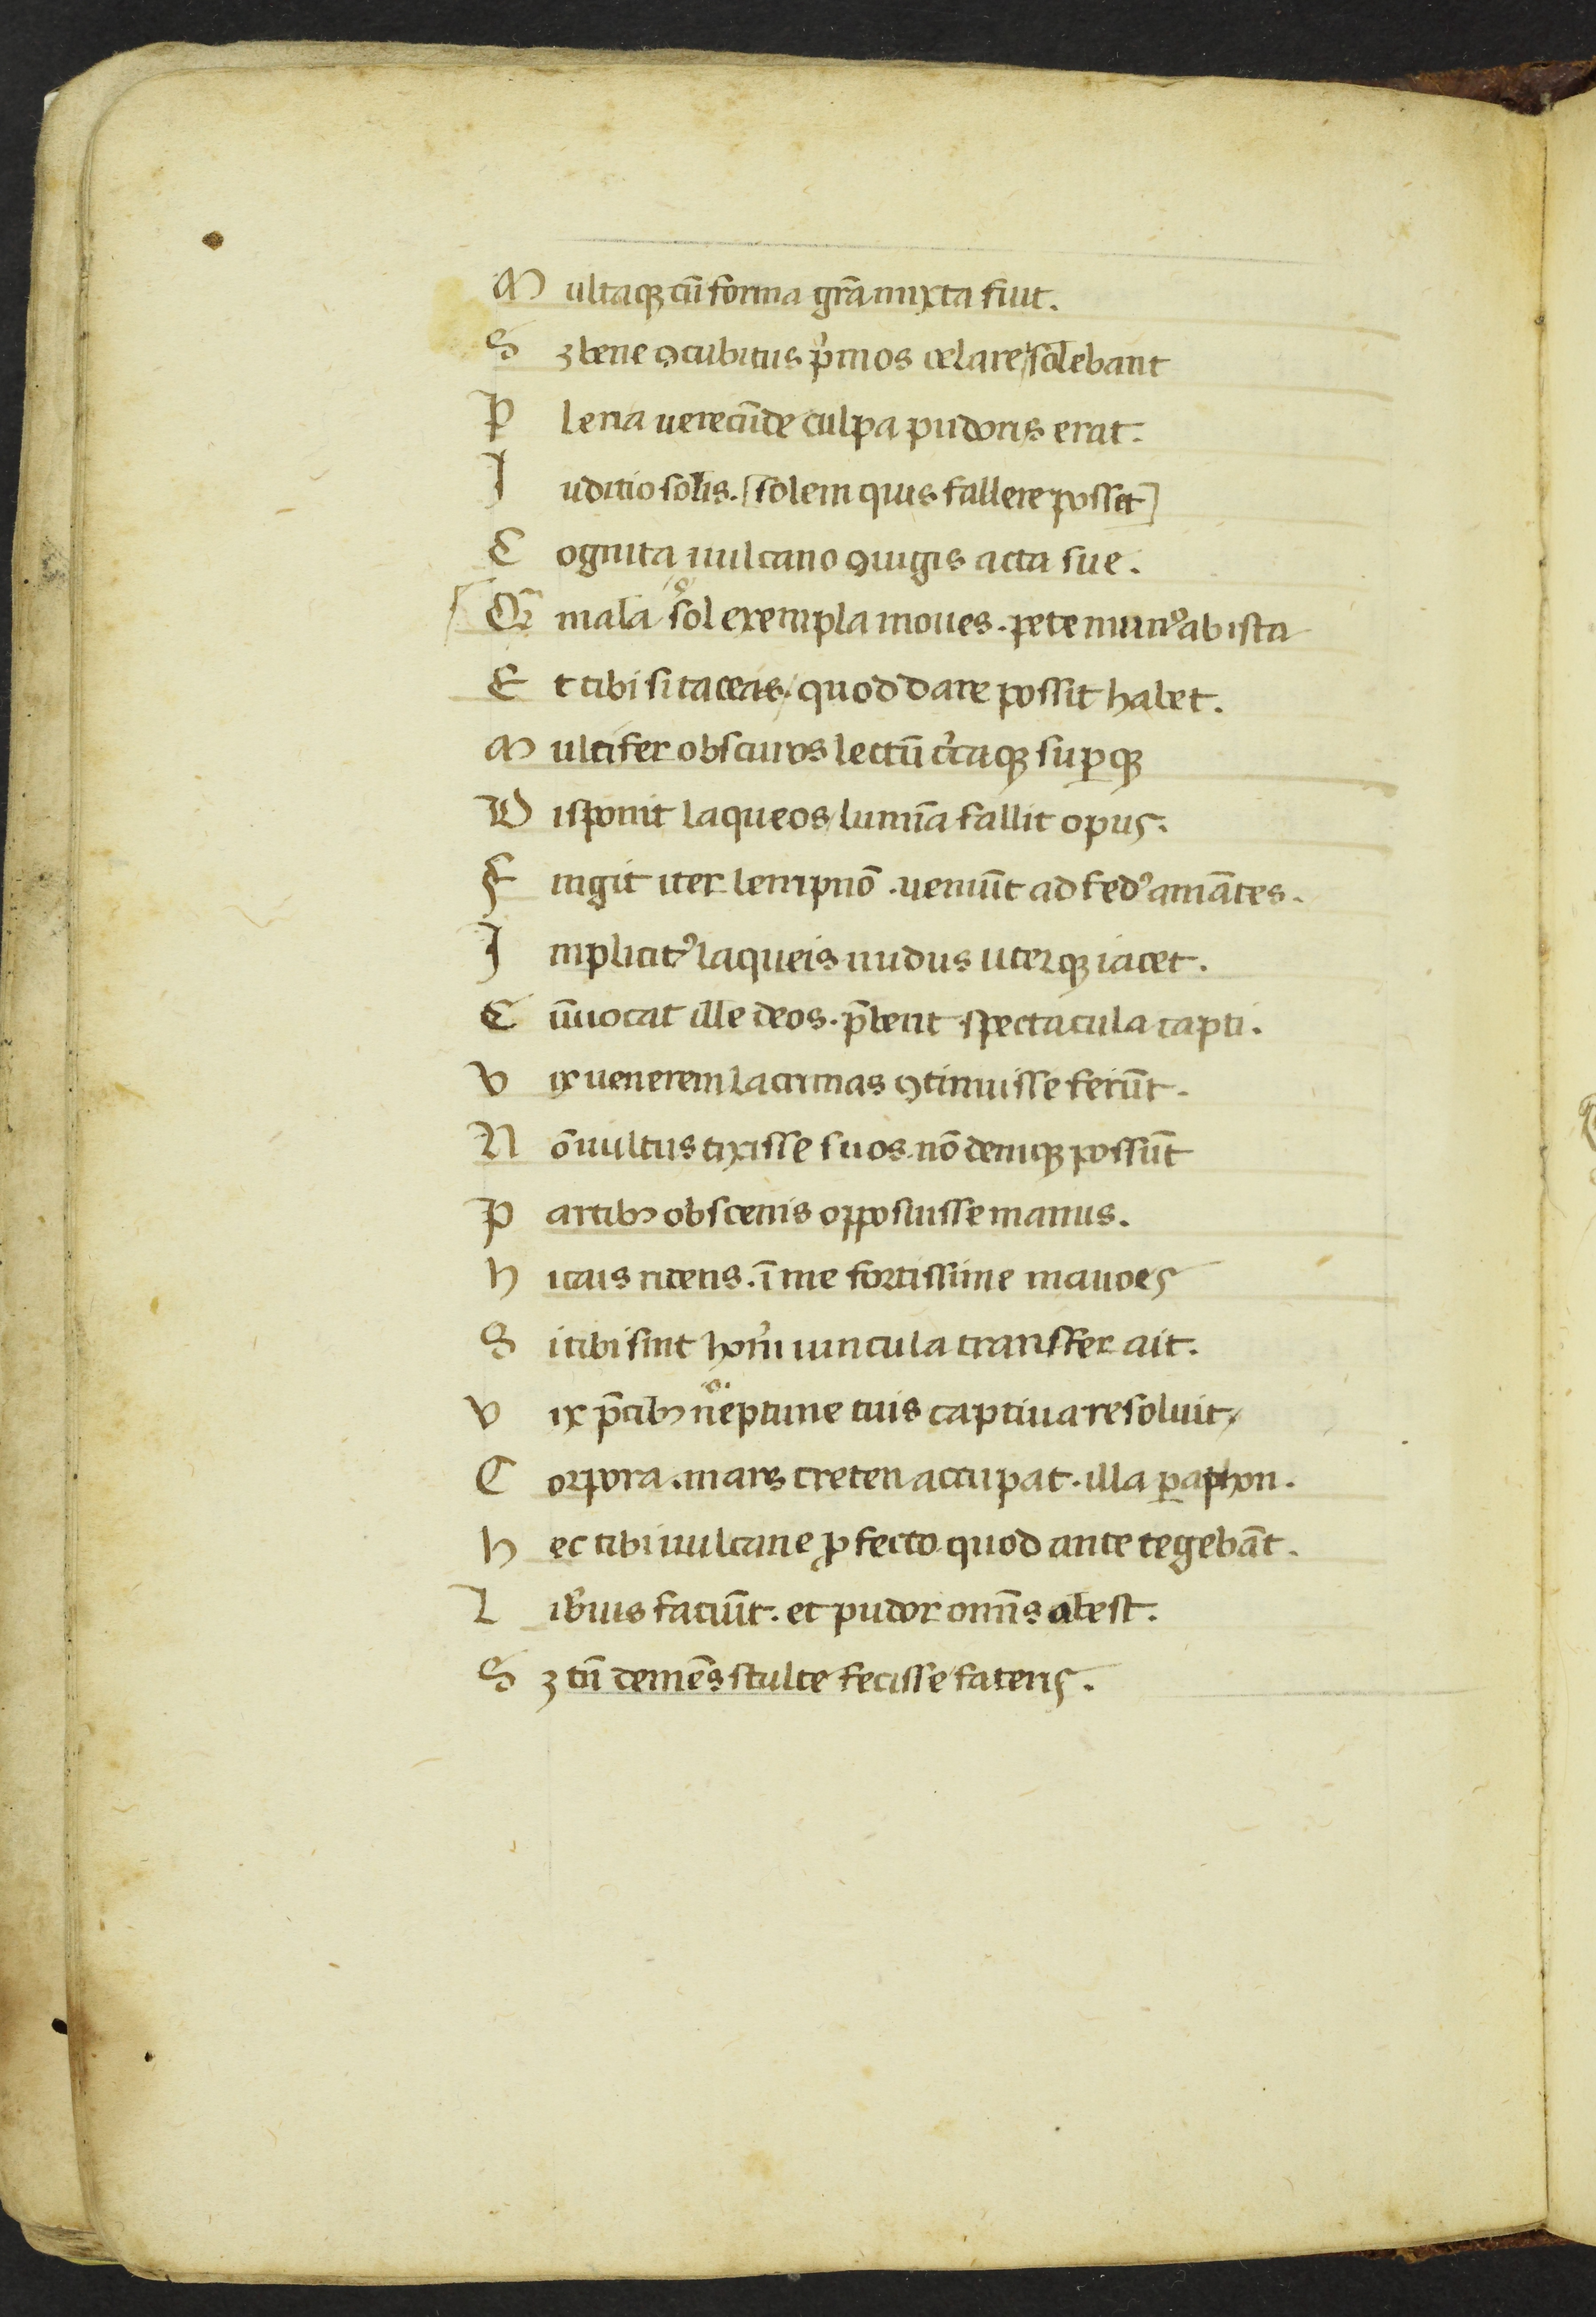 M ultaqꝫ cū forma gr̄a mixta fuit.
S ꝫ bene ꝯcubitus pͥmos celare solebant
P lena uerecūde culpa pudoris erat.
I uditio solis. [solem quis fallere posset]
C ognita uulcano ꝯiugis acta sue.
Q̄ mala °sol exempla moues. pete mun᾽ ab ista
E t tibi si taceas/ quod dare possit habet.
M ulcifer obscuros lectū cͥcaqꝫ suꝑqꝫ
D isponit laqueos/ lumīa fallit opus.
F ingit iter lempnō. ueniūt ad fed᾽ amātes.
I mplicit᾽ laqueis nudus uterqꝫ iacet.
C ūuocat ille deos. p̄bent spectacula capti.
V ix uenerem lacrimas ꝯtinuisse ferūt.
N ō uultus tixisse suos. nō deniqꝫ possūt
P artibꝫ obscenis opposuisse manus.
H icais ridens. ī me fortissime mauors
S i tibi sint hon̄i uincula transfer ait.
V ix p̄cibꝫ °neptune tuis captiua resoluit/
C orpora. mars creten accupat. illa paphon.
H ec tibi uulcane ꝓfecto quod ante tegebāt.
L ib᾽ius faciūt. et pudor omīs abest.
S ꝫ tn̄ demēs stulte fecisse fateris.